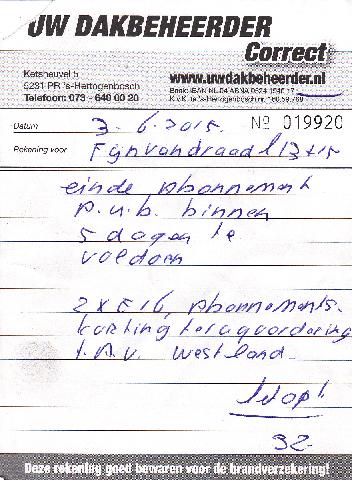 UW DAKBEHEERDER
Correct
Ketsheuvel 5
5231 PR 's-Hertogenbosch
Telefoon: 073 - 640 00 20
www.uwdakbeheerder.nl
Bank: IBAN NL 04 ABNA 0624 1540 17
K.v.K. te 's-Hertogenbosch nr. 160.59.769
Datum 3-6-2015. No 019920
Rekening voor Fijnvandraad 13+15
einde Abonnement
A.u.b. binnen
5 dagen te
voldoen
2x €16, Abonnements-
korting terugvordering
t.n.v. Westland.
32-
Deze rekening goed bewaren voor de brandverzekering!